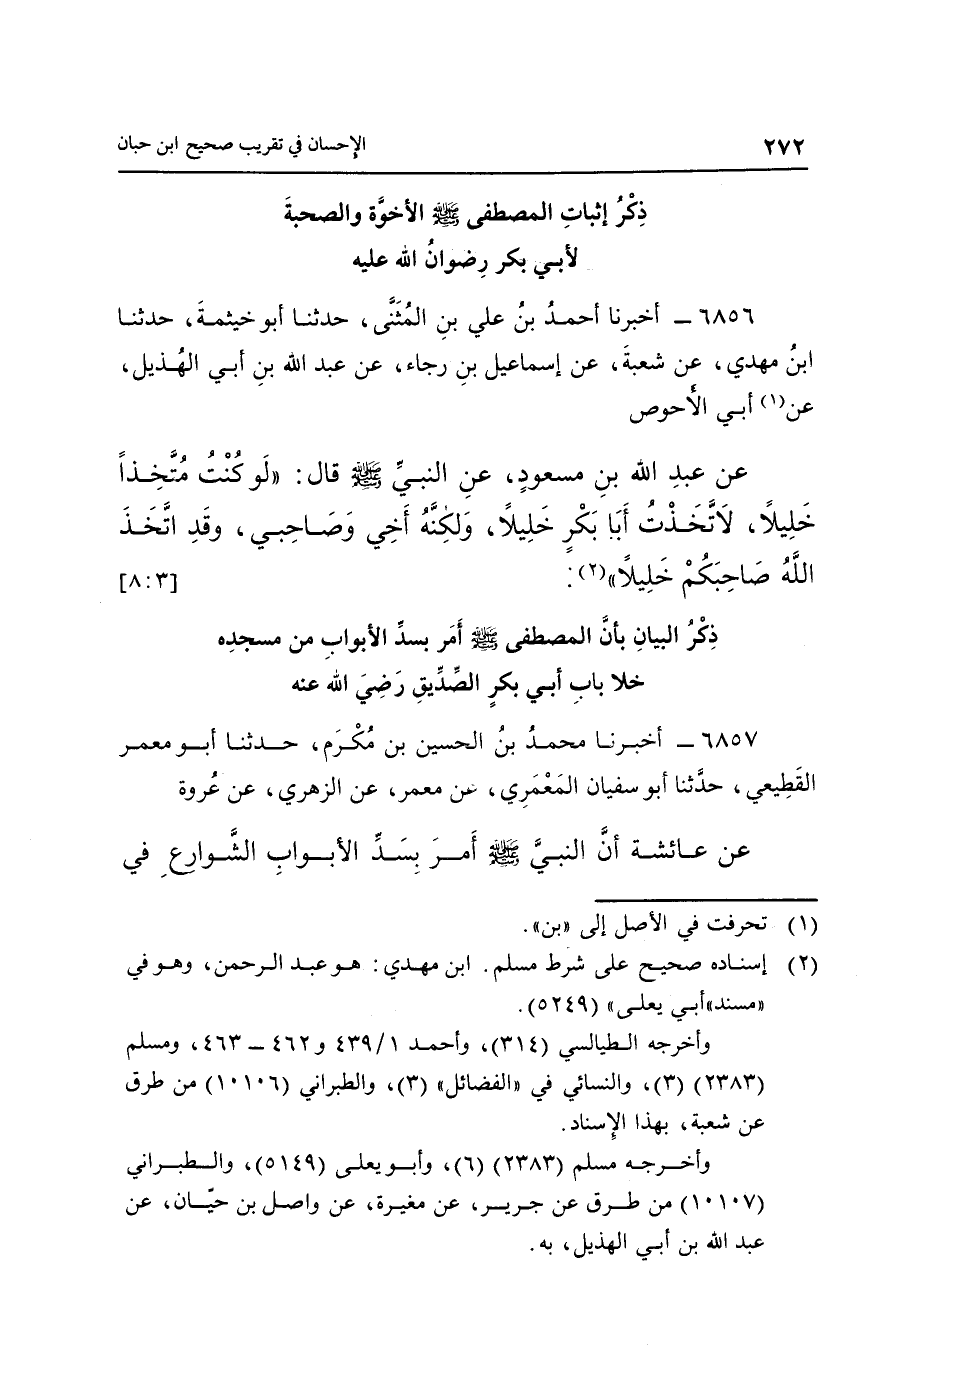 ٢٧٢ الإحسان في تقريب صحيح ابن حبان
ذِكْرُ إثباتِ المصطفى ﷺ الأخوَّة والصحبةَ
لأبي بكر رِضوانُ الله عليه
٦٨٥٦ ــ أخبرنا أحمدُ بنُ علي بنِ المُثَنَّى، حدثنا أبو خيثمةَ، حدثنا
ابنُ مهدي، عن شعبةَ، عن إسماعيل بنِ رجاء، عن عبد الله بنِ أبي الهُذيل،
عن(١) أبي الأحوص
عن عبدِ الله بنِ مسعودٍ، عنِ النبيِّ ﷺ قال: «لَو كُنْتُ مُتَّخِذاً
خَلِيلًا، لَاتَّخَذْتُ أَبَا بَكْرٍ خَلِيلًا، وَلَكِنَّهُ أَخِي وَصَاحِبي، وقَدِ اتَّخَذَ
اللَّهُ صَاحِبَكُمْ خَلِيلًا»(٢): [٨:٣]
ذِكْرُ البيانِ بأنَّ المصطفى ﷺ أمَر بسدِّ الأبوابِ من مسجدِه
خلا بابِ أبي بكرٍ الصِّدِّيقِ رَضِيَ الله عنه
٦٨٥٧ ــ أخبرنا محمدُ بنُ الحسين بن مُكْرَم، حدثنا أبو معمر
القَطِيعي، حدَّثنا أبو سفيان المَعْمَري، عن معمر، عن الزهري، عن عُروة
عن عائشة أنَّ النبيَّ ﷺ أمرَ بِسَدِّ الأبوابِ الشَّوارِعِ في
(١) تحرفت في الأصل إلى «بن».
(٢) إسناده صحيح على شرط مسلم. ابن مهدي: هو عبد الرحمن، وهو في
«مسند» أبي يعلى» (٥٢٤٩).
وأخرجه الطيالسي (٣١٤)، وأحمد ٤٣٩/١ و٤٦٢ ــ ٤٦٣، ومسلم
(٢٣٨٣) (٣)، والنسائي في «الفضائل» (٣)، والطبراني (١٠١٠٦) من طرق
عن شعبة، بهذا الإسناد.
وأخرجه مسلم (٢٣٨٣) (٦)، وأبو يعلى (٥١٤٩)، والطبراني
(١٠١٠٧) من طرق عن جرير، عن مغيرة، عن واصل بن حيّان، عن
عبد الله بن أبي الهذيل، به.